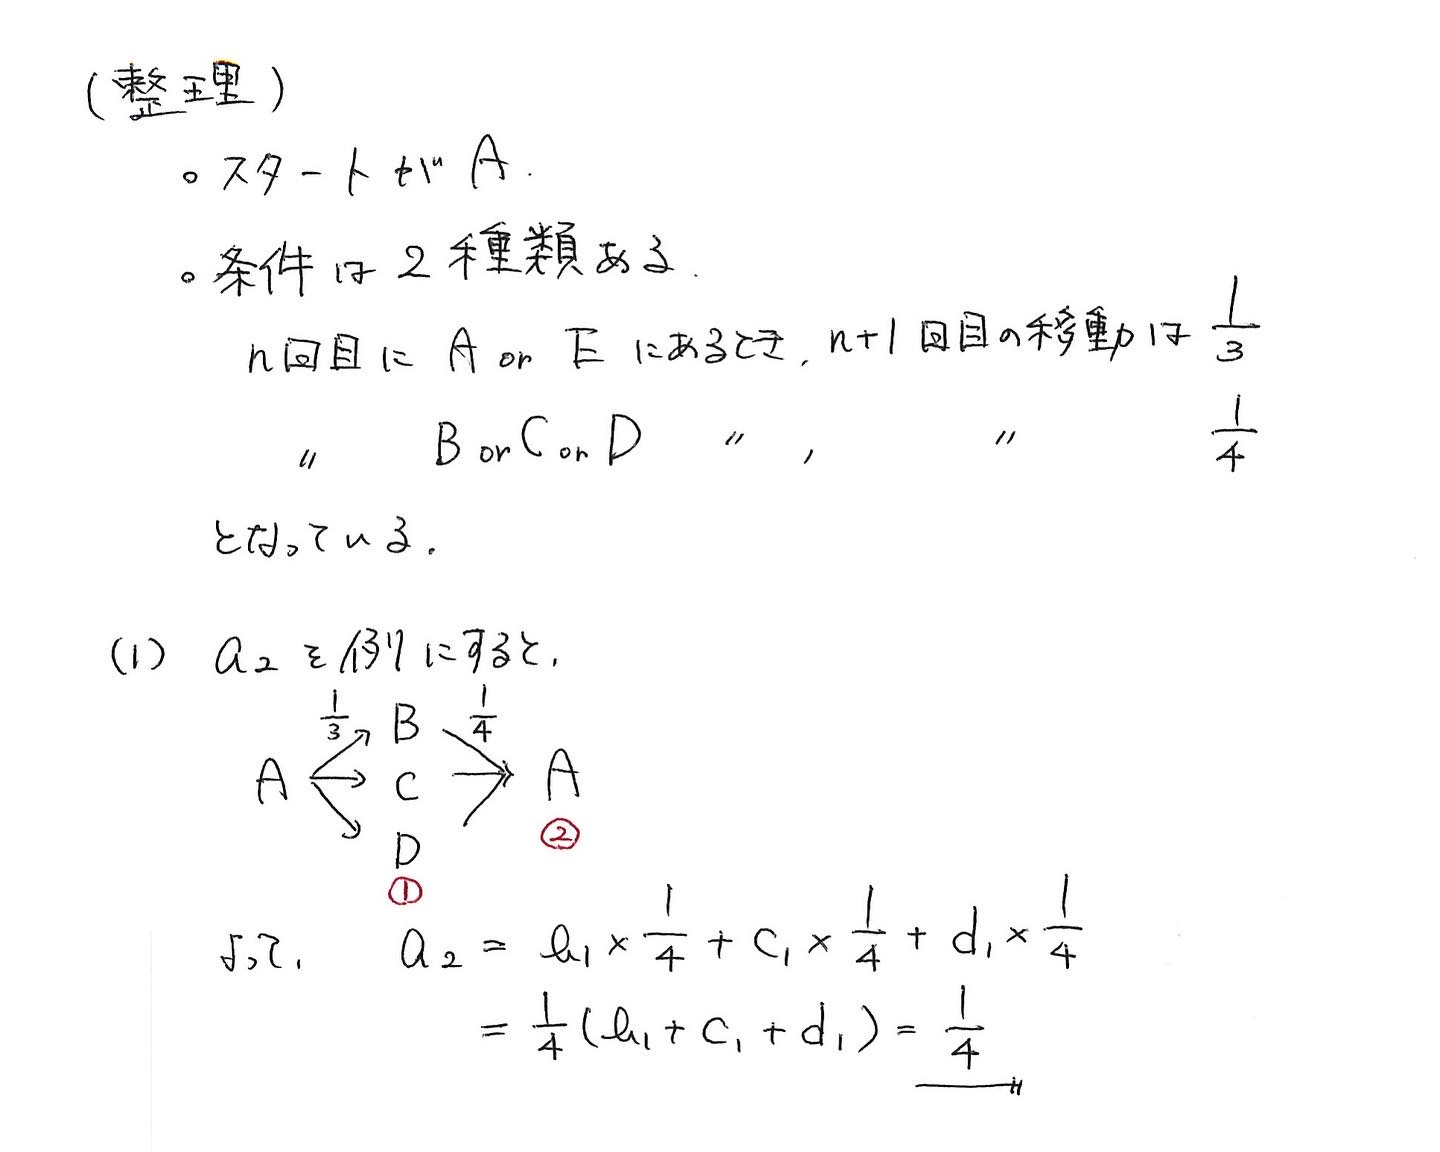 (整理)
。スタートがA.
。条件は2種類ある.
n回目に A or E にあるとき, n+1回目の移動は 1/3
〃 B or C or D 〃, 〃 1/4
となっている.
(1) a₂を例にすると,
1/3 B 1/4
A C A
D ②
①
よって, a₂ = b₁ × 1/4 + c₁ × 1/4 + d₁ × 1/4
= 1/4 (b₁ + c₁ + d₁) = 1/4